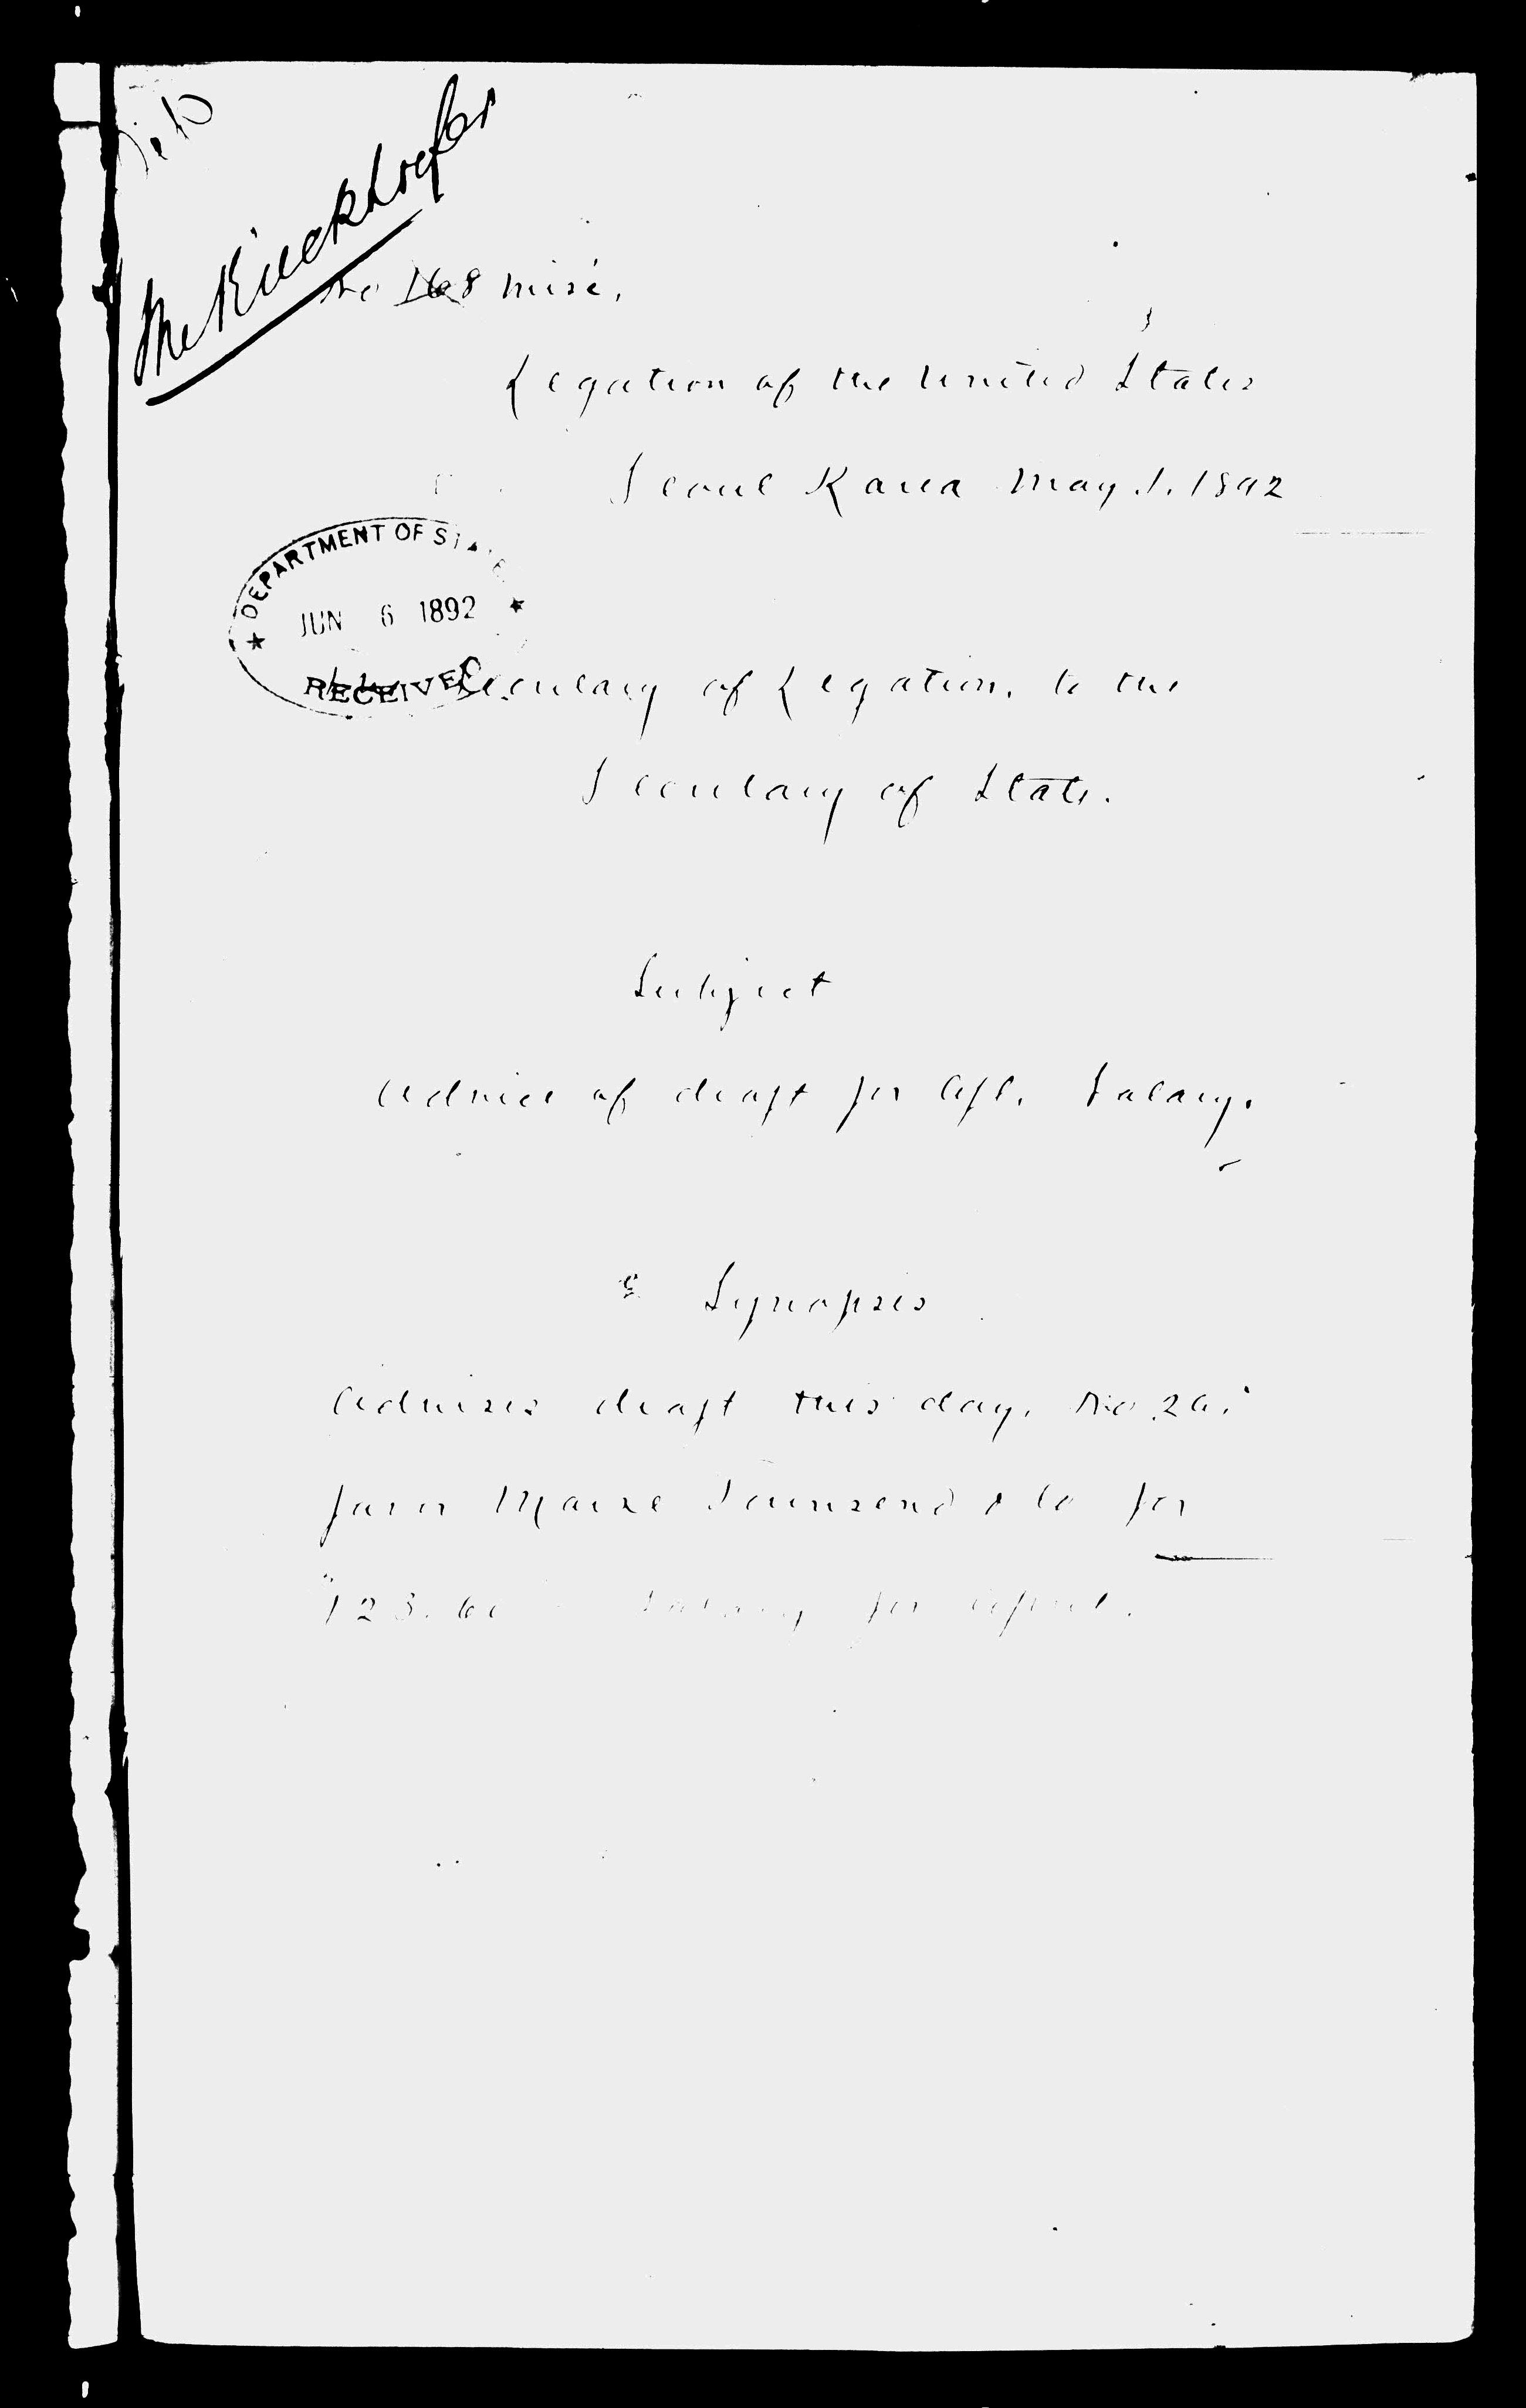 Mr Kieckhoefer
No 168 misc.
Legation of the United States
Seoul Korea May 1. 1892
DEPARTMENT OF STATE
JUN 6 1892
RECEIVED
Secretary of Legation, to the
Secretary of State.
Subject
Advice of draft for Apl. Salary.
Synopsis
Advises draft this day, No
favor Morse Townsend & Co for
Salary for April.